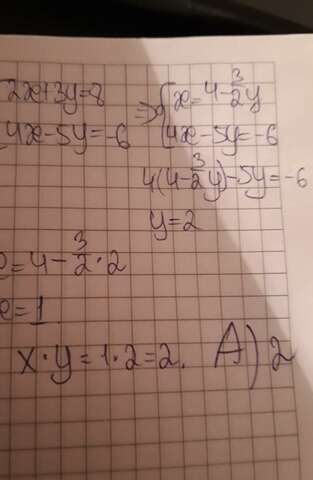 2x+3y=8 => { x=4-3/2y
{ 4x-5y=-6 { 4x-5y=-6
4(4-3/2y)-5y=-6
y=2
x=4-3/2·2
x=1
x·y=1·2=2. A) 2